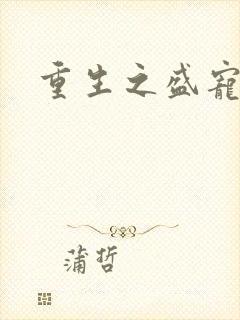 重生之盛宠
蒲哲